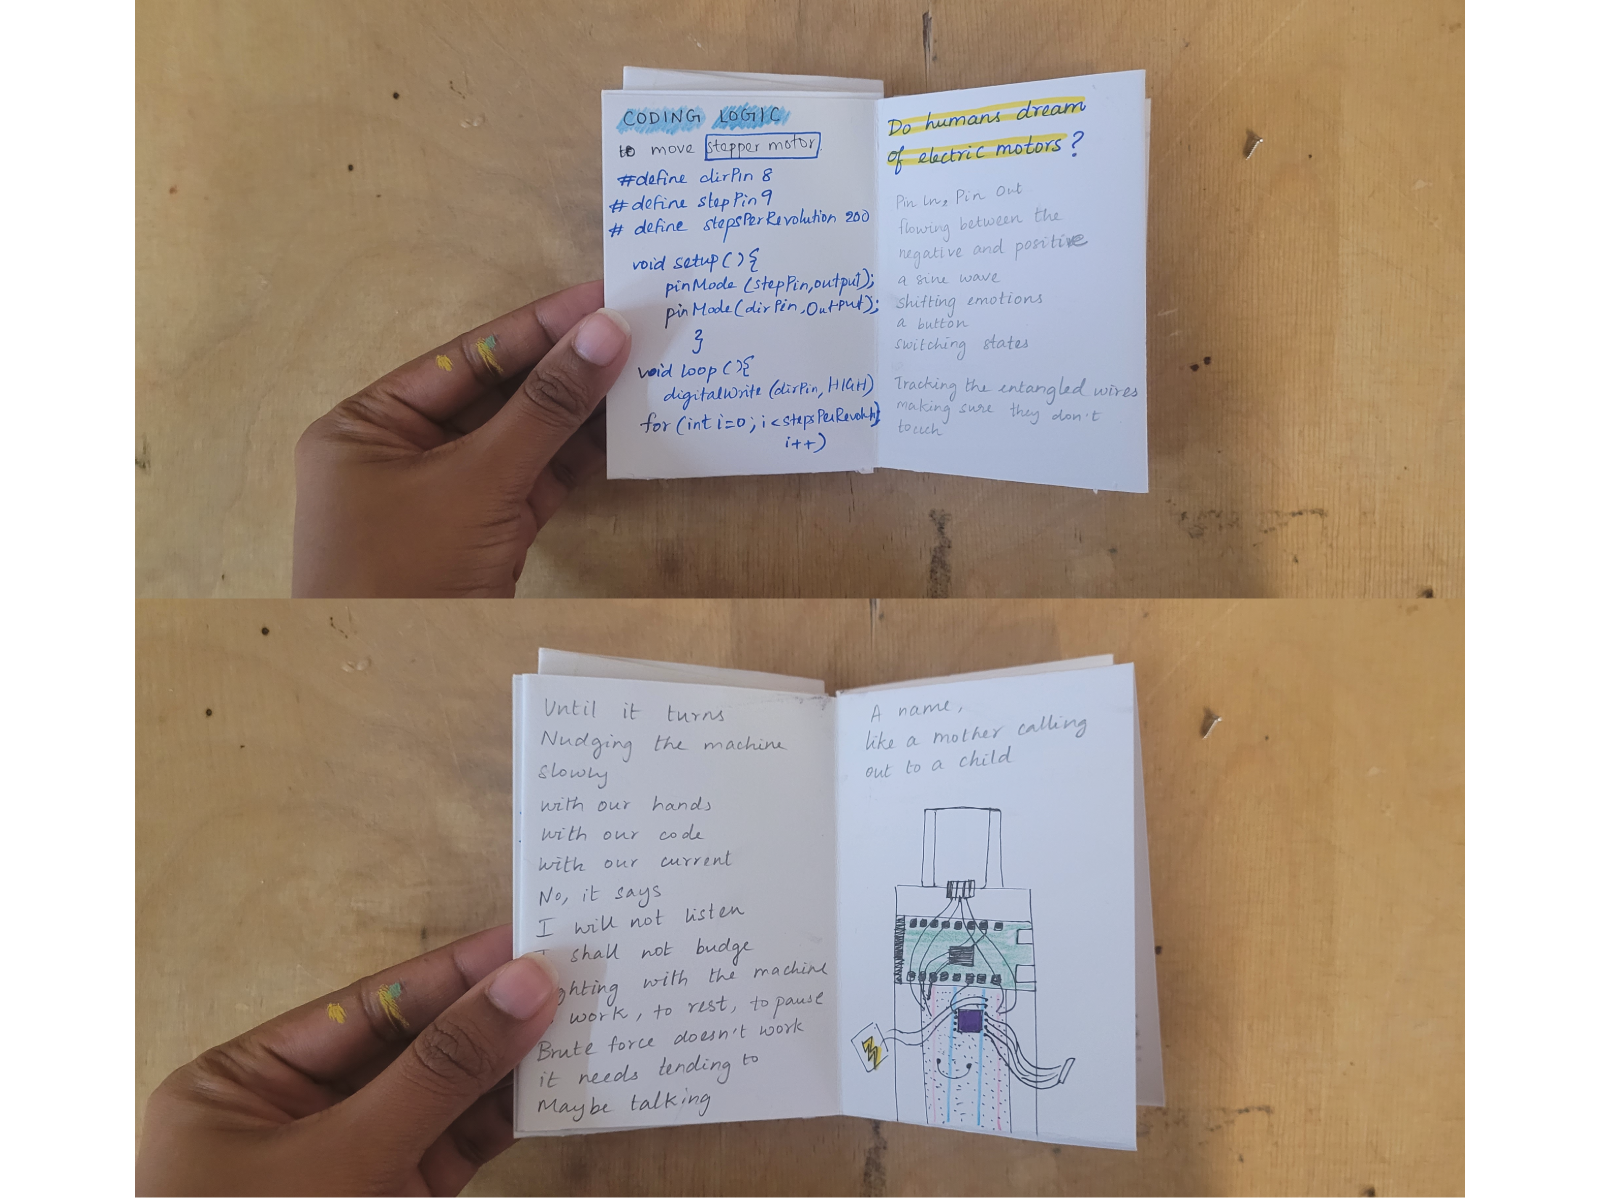 CODING LOGIC
to move stepper motor
#define dirPin 8
# define stepPin 9
# define stepsPerRevolution 200
void setup ( ) {
pinMode (stepPin, output);
pinMode (dirPin, Output);
}
void loop ( ) {
digitalWrite (dirPin, HIGH)
for (int i=0; i < stepsPerRevolutn;
i++)
Do humans dream
of electric motors?
Pin In, Pin Out
flowing between the
negative and positive
a sine wave
shifting emotions
a button
switching states
Tracking the entangled wires
making sure they don't
touch
Until it turns
Nudging the machine
slowly
with our hands
with our code
with our current
No, it says
I will not listen
I shall not budge
ghting with the machine
work, to rest, to pause
Brute force doesn't work
it needs tending to
Maybe talking
A name,
like a mother calling
out to a child